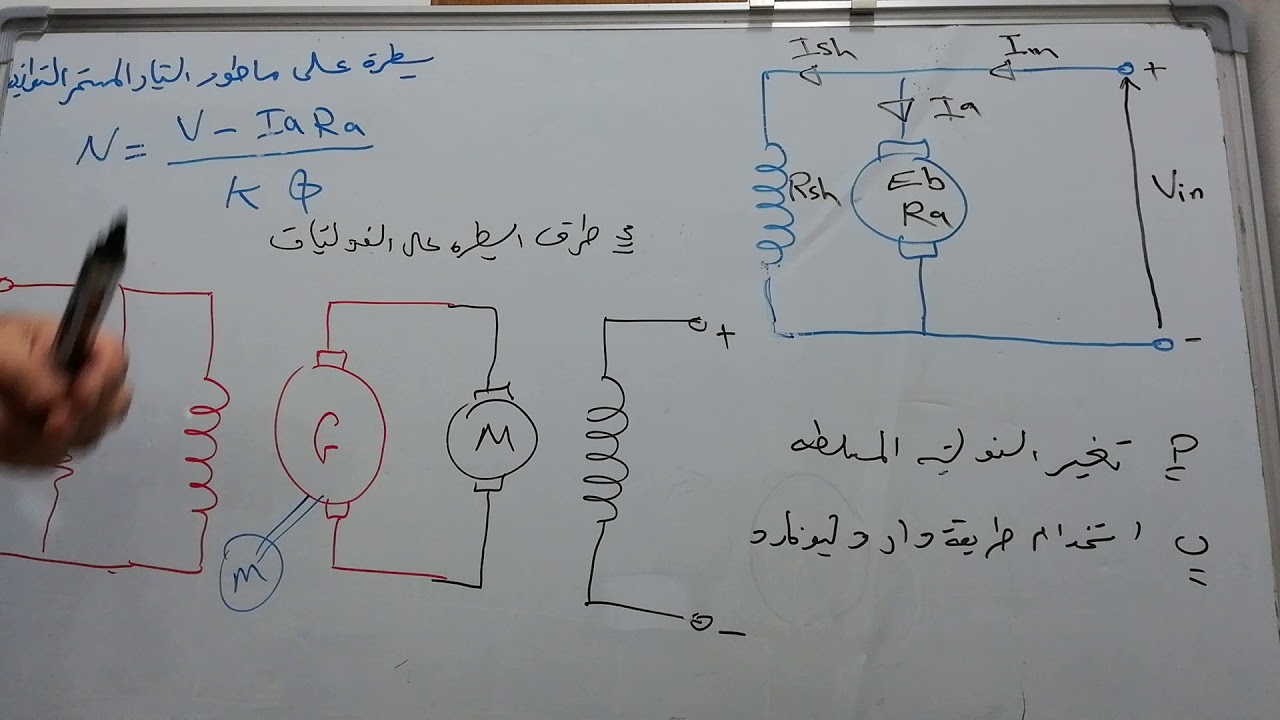 سيطرة على ماطور التيار المستمر التوازي
N = V - Ia Ra / K Φ
3 طرق السيطره على الفولتيات
Ish
Im
+
Ia
Rsh
Eb
Ra
Vin
-
G
M
m
+
-
P تغير الفولتيه المسلطه
ب استخدام طريقة وارد ليونارد